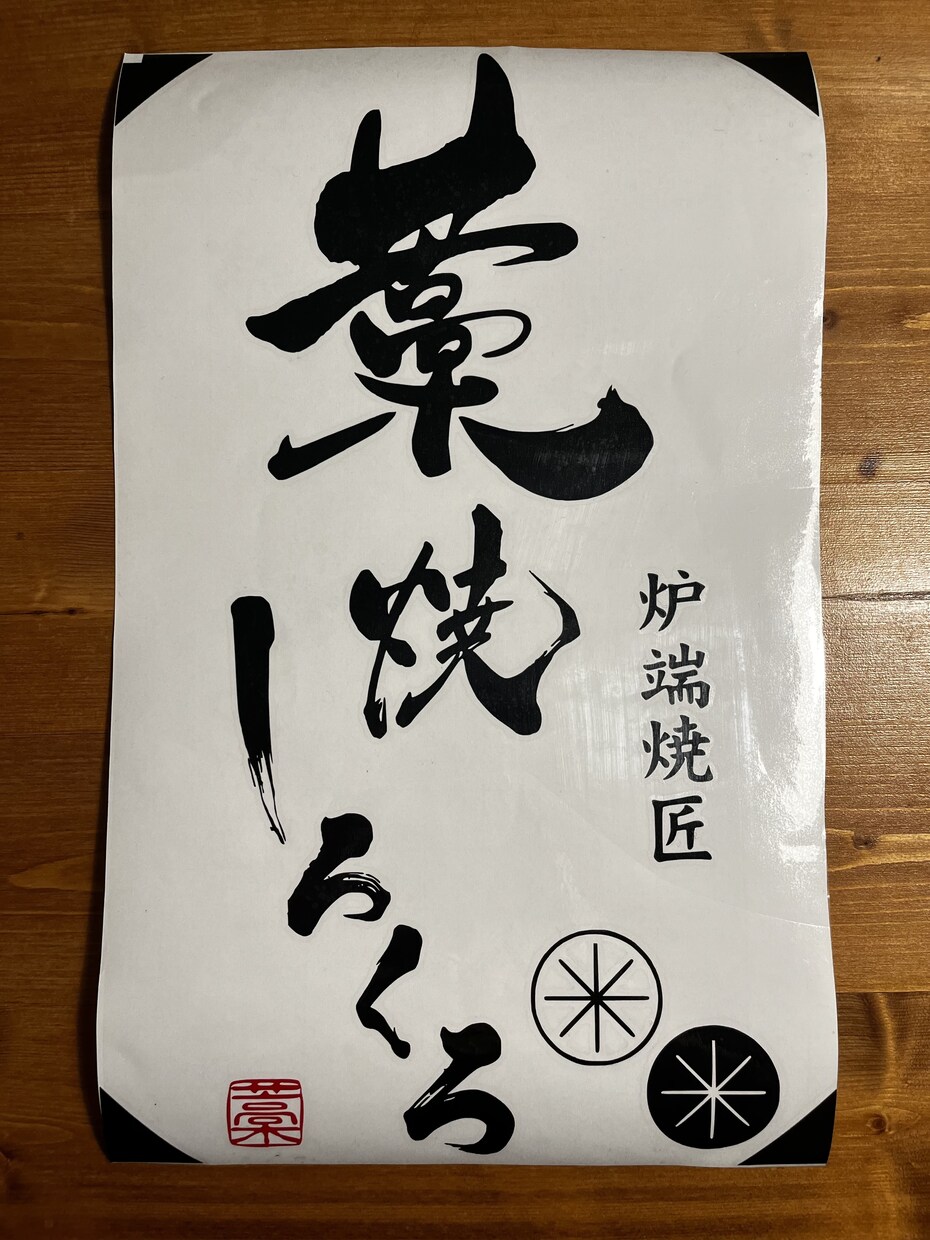 炉端焼匠
藁焼
しろくろ
藁